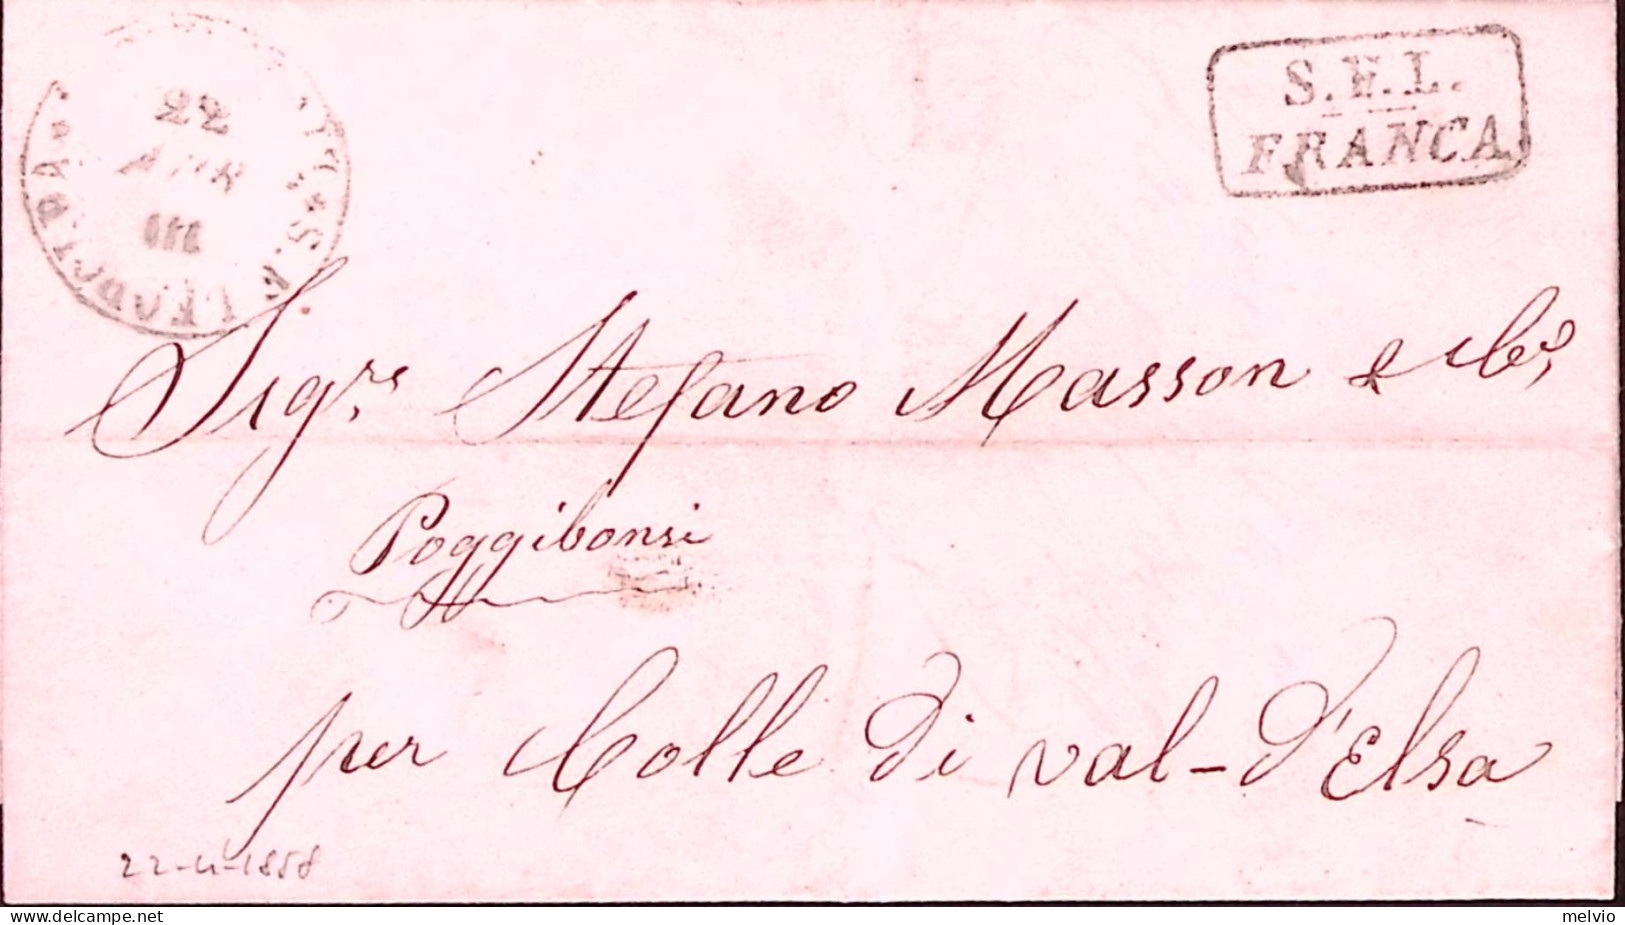 22
APR
S.E.L.
FRANCA
Sigrs Stefano Masson &
Poggibonsi
per Colle di val-d'Elsa
22-4-1858
www.delcampe.net
melvio